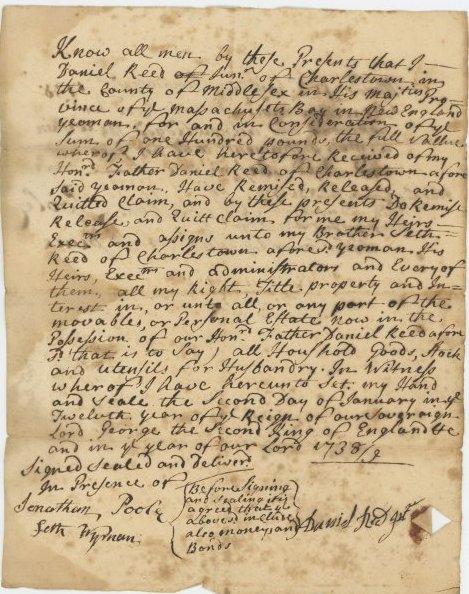 Know all men by these Presents that I
Daniel Reed Junr. of Charlestown in
the County of Middlesex in His Majties Pro
vince of ye Massachusets Bay in New England
yeoman, for and in Consideration of ye
Sum of one Hundred pounds, the full Vallue
wherof I have heretofore Received of my
Honrd. Father Daniel Reed of Charlestown afore
said yeoman, Have Remised, Released, and
Quitted Claim, and by these presents Do Remise
Release, and Quitt Claim for me my Heirs
Execrs and assigns unto my Brother Seth
Reed of Charlestown afores.d yeoman His
Heirs, Execrs and administrators and Every of
them, all my Right Title property and In=
terest in, or unto all, or any part of the
movables, or Personal Estate now in the
Possession of our Honrd Father Daniel Reed afore
sd that is to Say, all Houshold Goods, Stock
and utensils for Husbandry. In Witness
wherof I have hereunto Set my Hand
and Seale the Second Day of January in ye
Twelvth year of ye Reign of our Sovereign
Lord George the Second King of England &c
and in ye year of our Lord 1738/9
Signed Sealed and Deliverd
In Presence of
Jonathan Poole
Seth Wyman
Before Signing
and Sealing it is
agreed that ye
above include
also money, and
Bonds
Daniel Red Jr